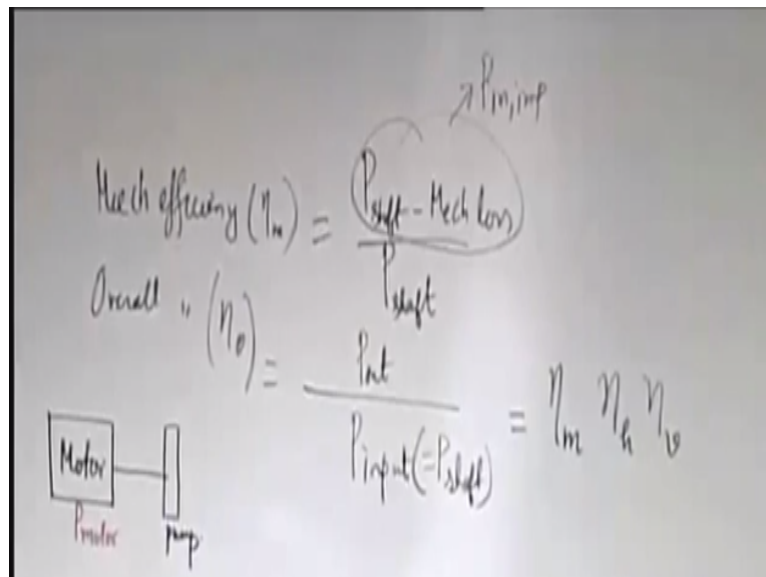 P_in,imp
Mech efficiency (η_m) = P_shaft - Mech loss / P_shaft
Overall " (η_o) = P_out / P_input (=P_shaft) = η_m η_h η_v
Motor
P_motor
pump